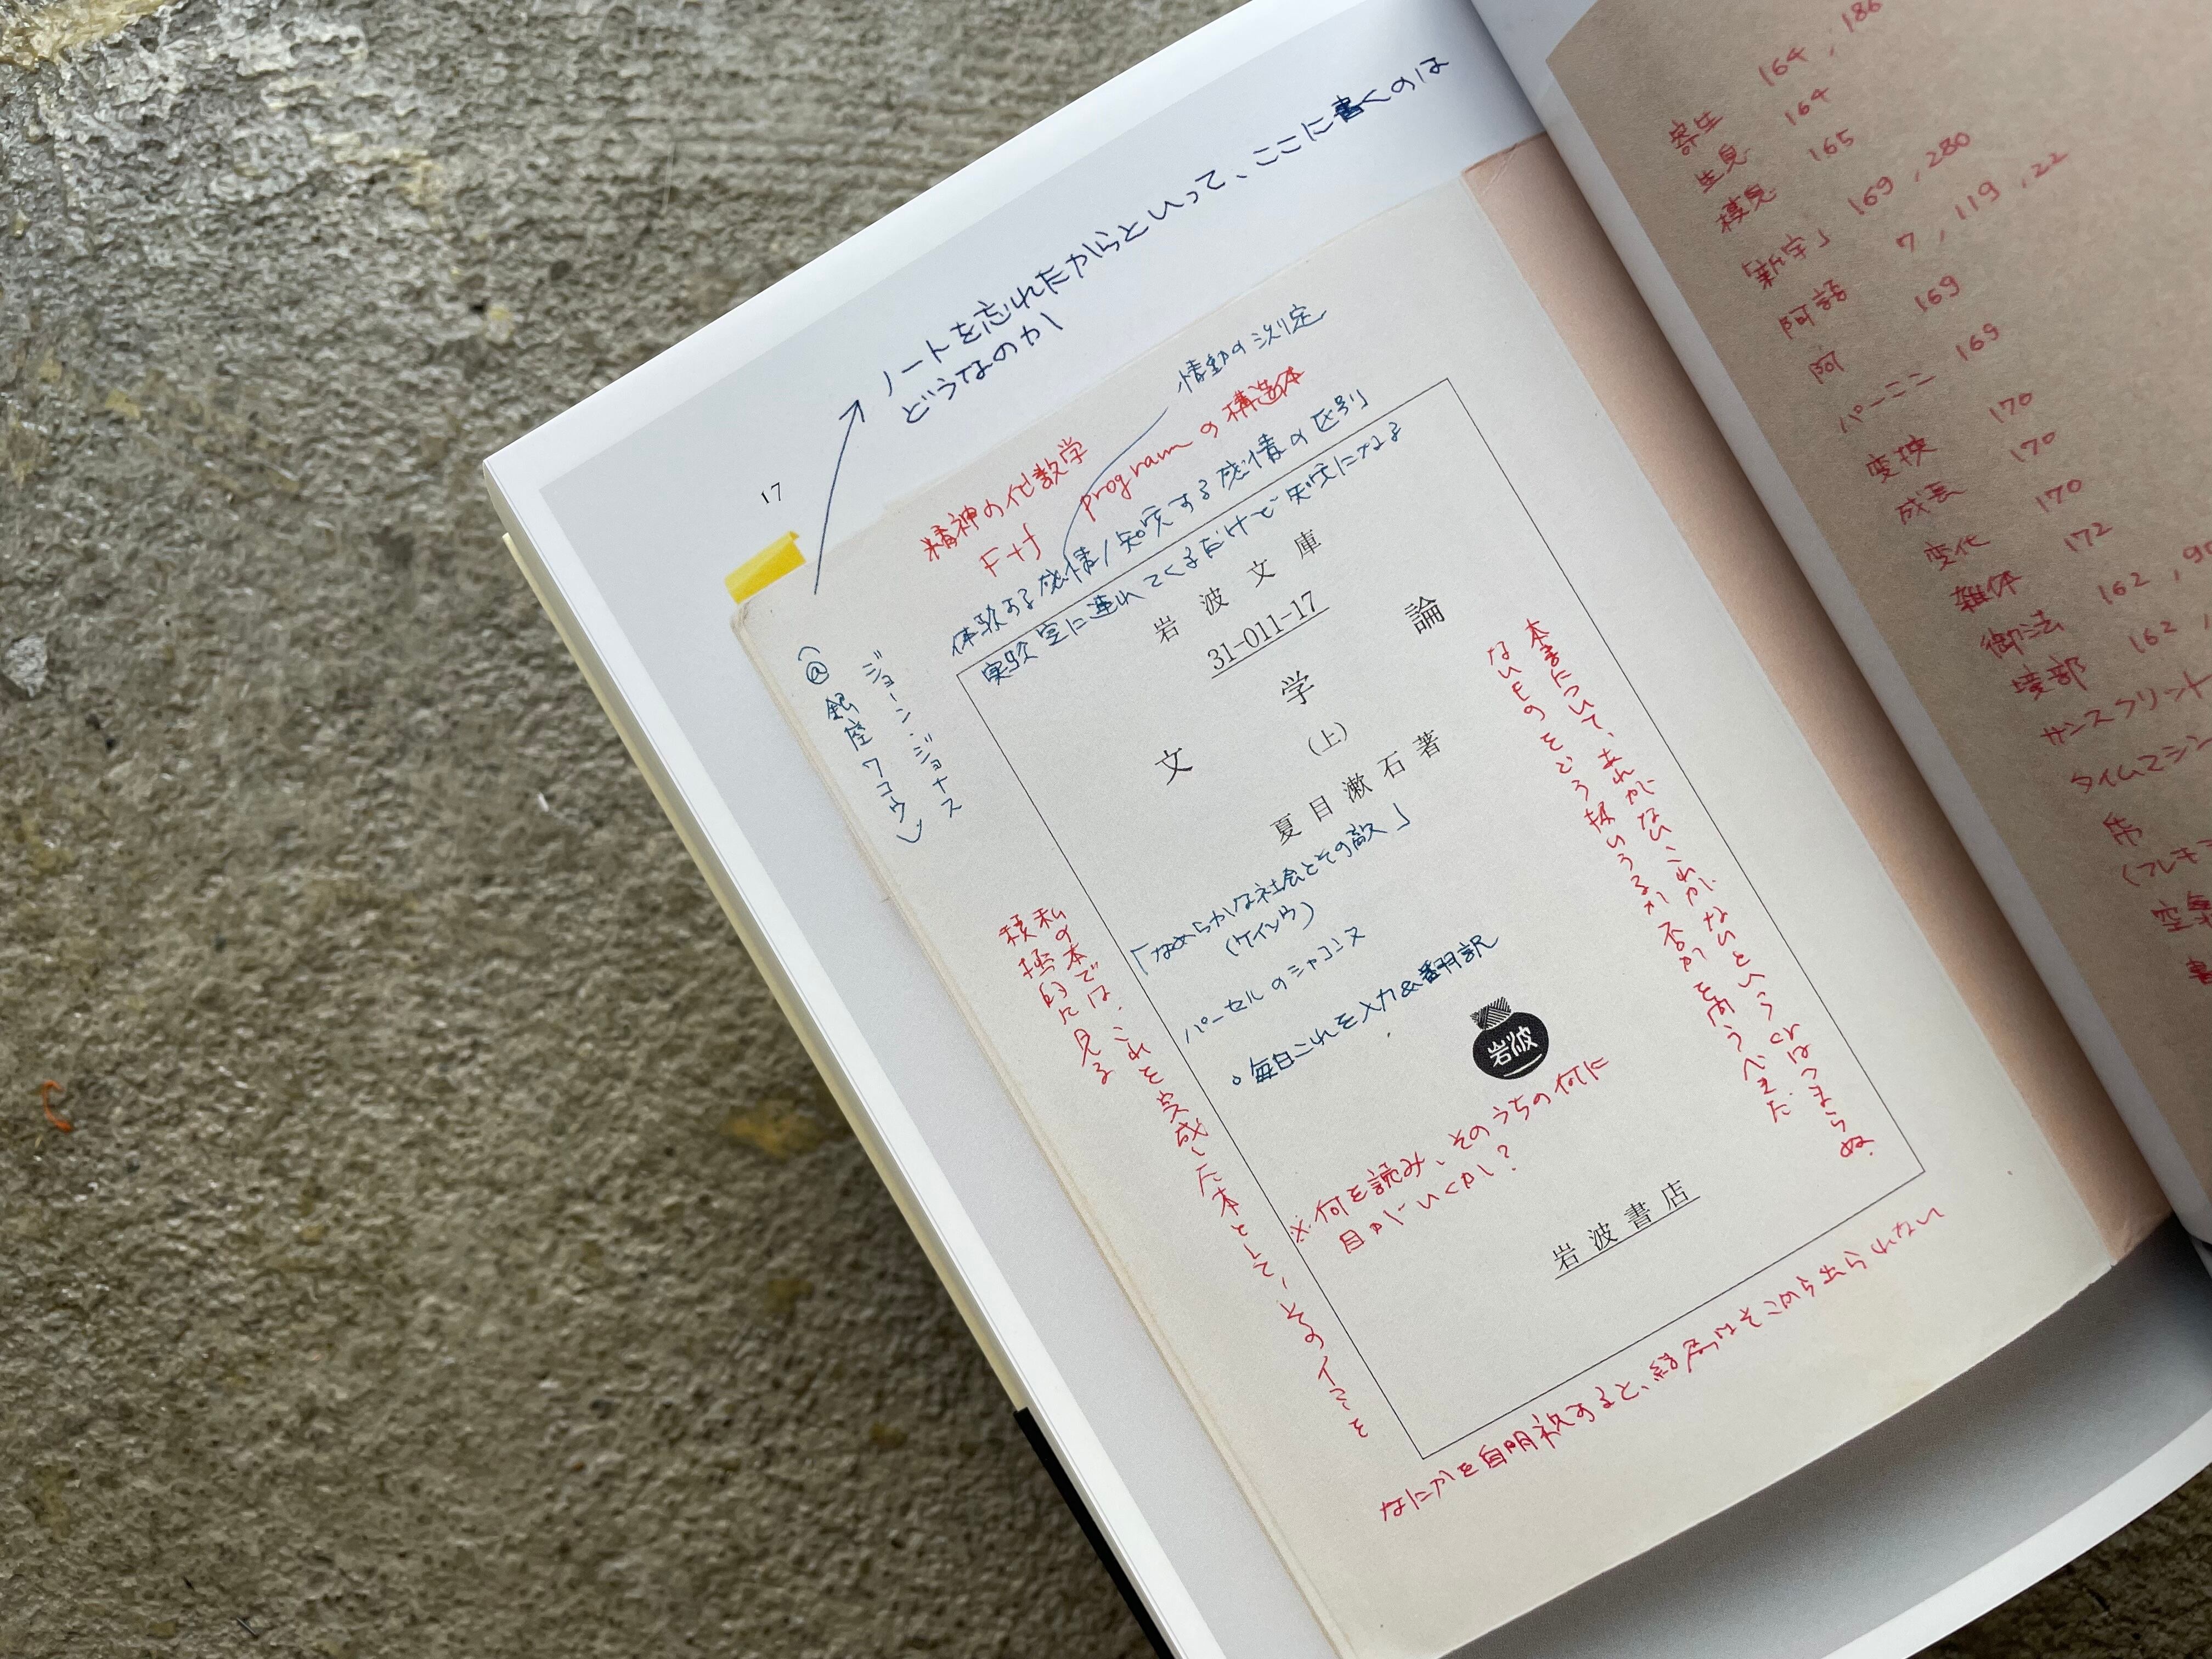 ノートを忘れたからといって、ここに書くのは
どうなのかし
17
情動の測定
精神の代数学
F+f programの構造体
体験する感情/知定する感情の区別
実験室に連れてくるだけで知定になる
ジョーン・ジョナス
(@銀座ワコウ)
岩波文庫
31-011-17
文学論
(上)
夏目漱石著
「なめらかな社会とその敵」
(ケイソウ)
パーセルのシャコンヌ
。毎日これを入力&翻訳
岩波
※何を読み、そのうちの何に
目がいくかし?
岩波書店
本書について、あれがないこれがないというcrはつまらぬ.
ないものをどう扱いうるか否かを問うべきだ
私の本では、これを完成した本として、そのイミを
積極的に見る
なにかを自明視すると、結局はそこから出られない
寄生 164, 186
生見 164
模見 165
「新字」 169, 280
阿語 7, 119, 22
阿 169
パーニニ 169
変換 170
成長 170
変化 170
雑体 172
御法 162, 90
陵部 162,
サンスクリット
タイムマシン